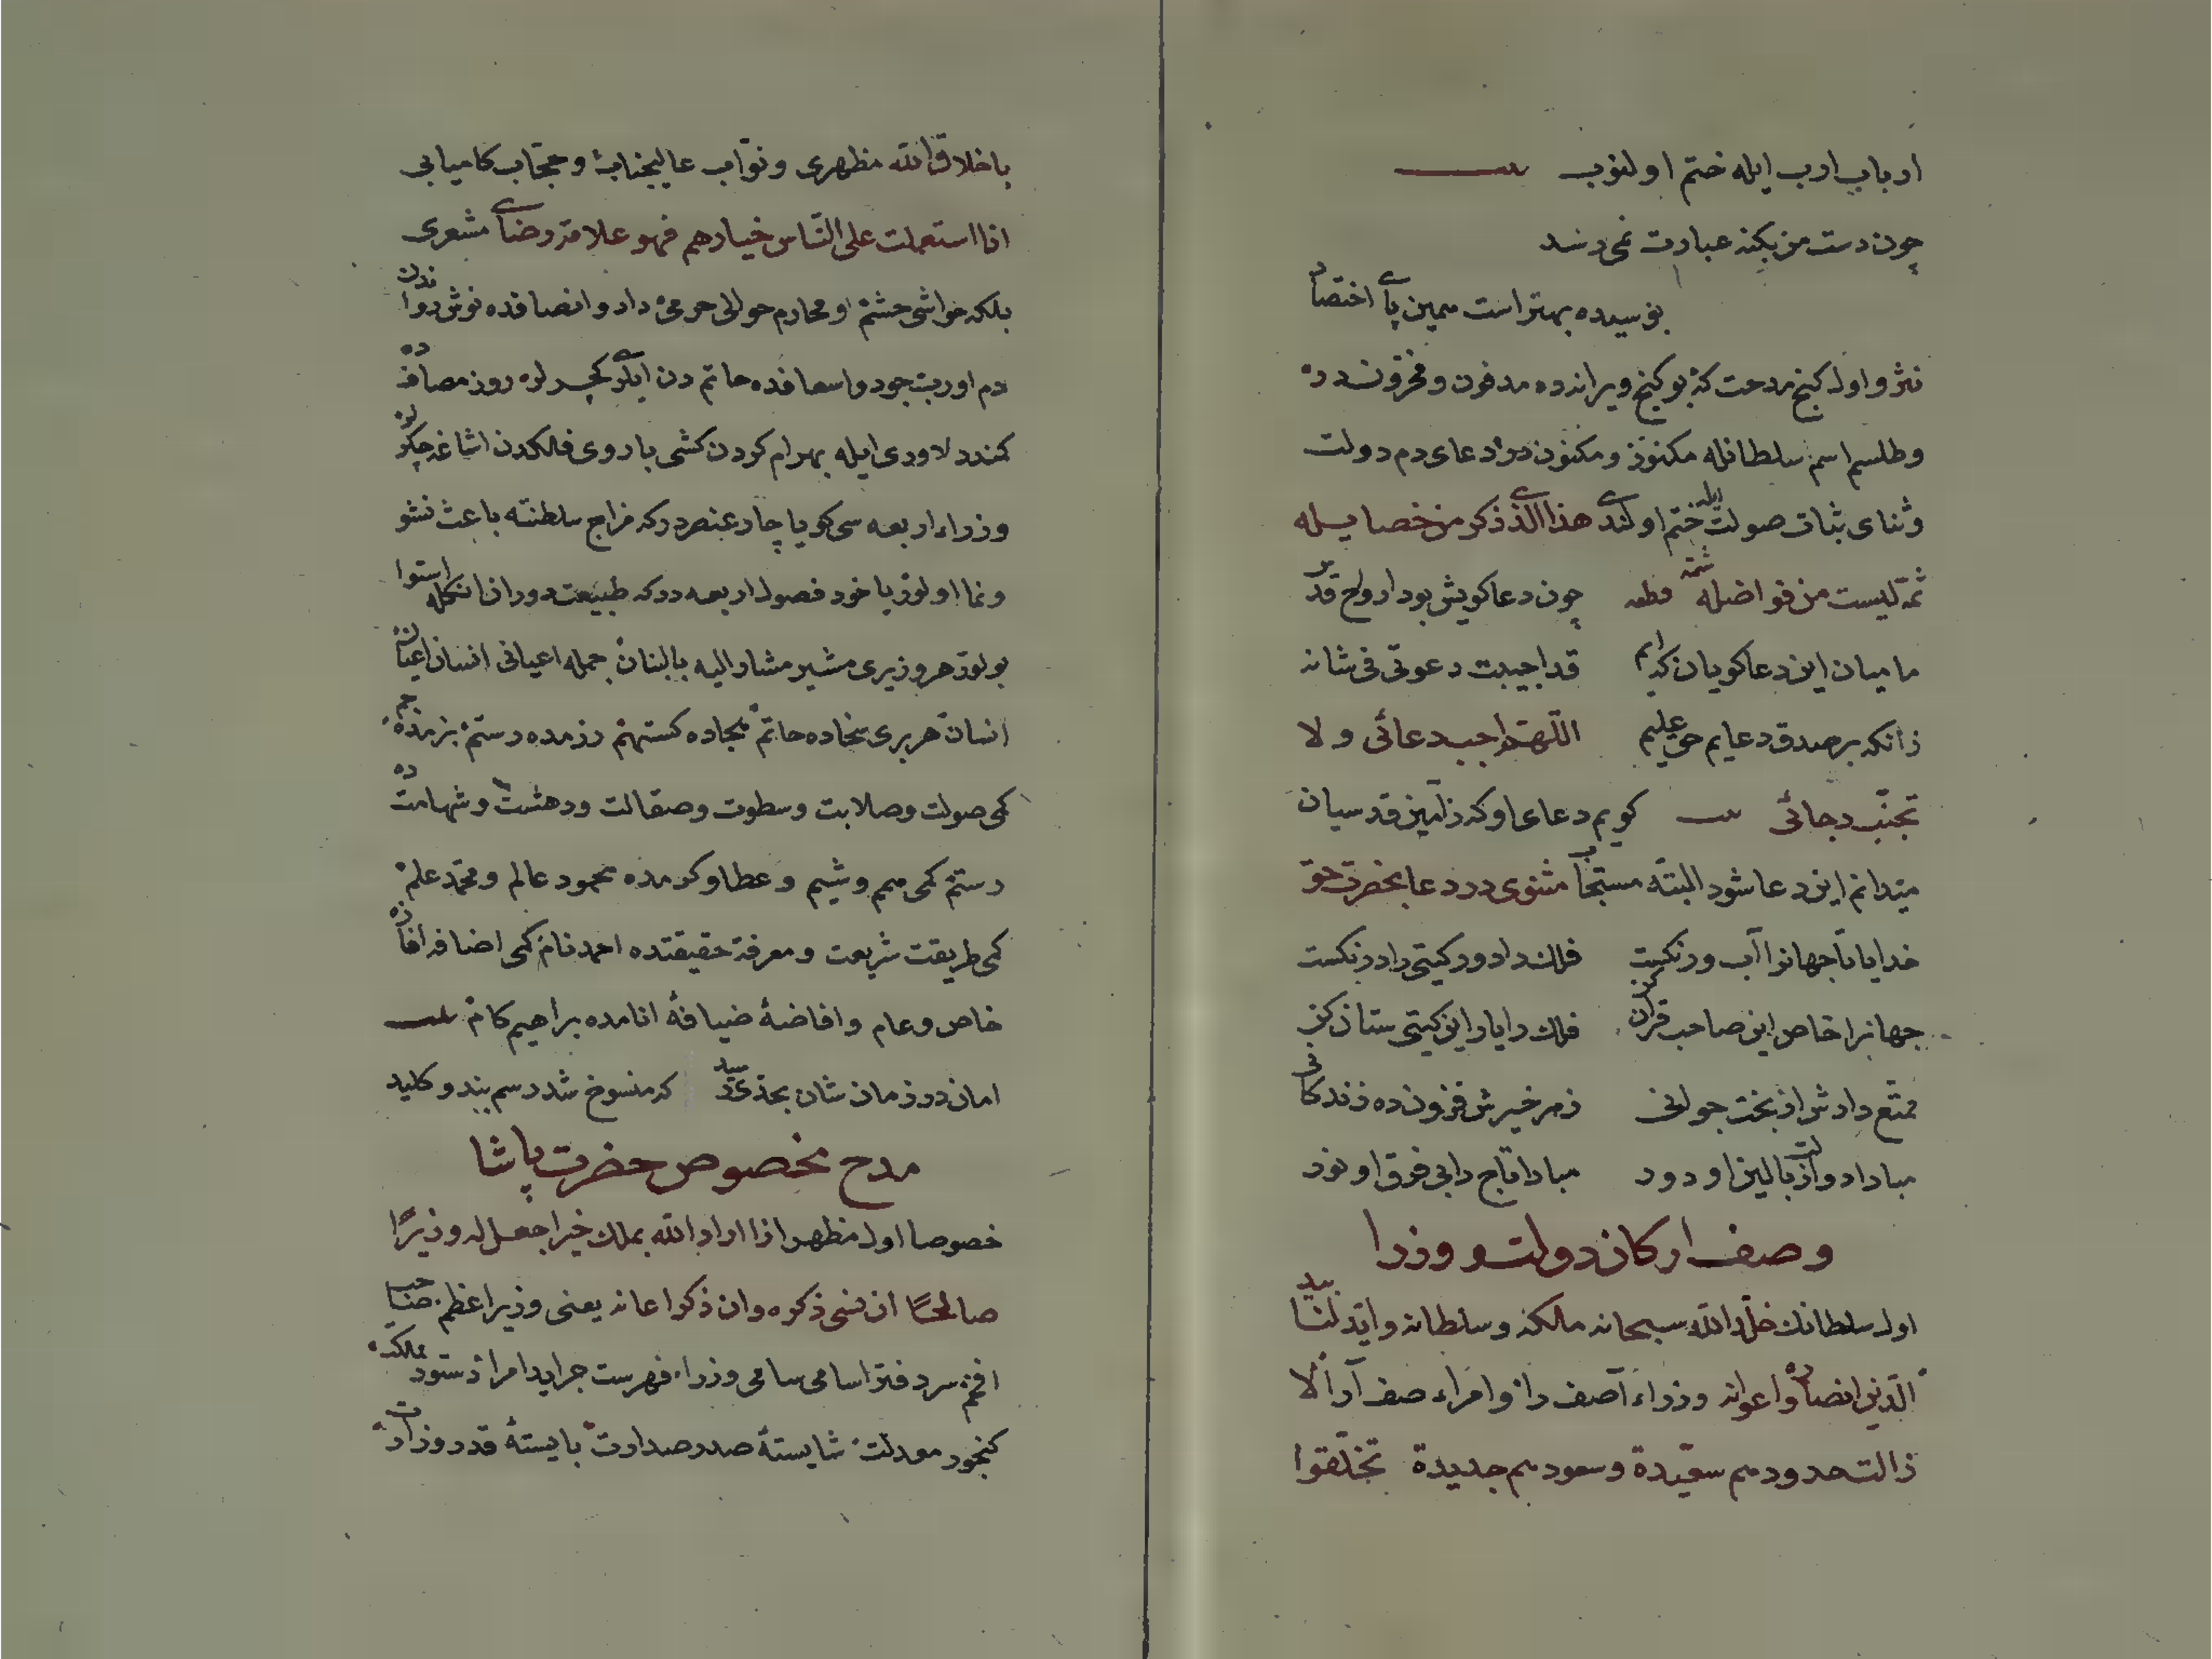 ارباب ادب ايله ختم اولنوب بيت
چون دست من بكنه عبارت نمی رسد
بوسيده بهتر است همين پای اختصار
نثر و اول كنج مدحت كه بو كنج ويرانده مدفون و مخزوندر
وطلسم اسم سلطانله مكنوز و مكنون در ادعای دم دولت
وثنای ثبات صولت ايله ختم اولندی هذا الذی ذكر من خصايله
ثمة ليست من فواضله شمّه قطعه چون دعا كويش بود ارواح قدس
ما ميان اين دعا كويان كه ايم قد اجيبت دعوتی فی شانه
زانكه بر صدق دعايم حق عليم اللّهمّ اجب دعائی ولا
تجنّب رجائی بيت كويم دعای او كه ز آمين قدسيان
ميدانم اين دعا شود البتّه مستجاب مثنوی در دعا بحضرت حق
خدايا تا جهانرا آب و رنكست فلك دا دور كيتی را درنكست
جهانرا خاص اين صاحب قران كن فلك را يار اين كيتی ستان كن
ممتّع دارش از بخت جوانی ز هر خيرش فزون ده زندكانی
مبادا دولت از بالين او دور مبادا تاج را بی فرق او نور
وصف اركان دولت و وزرا
اول سلطانك خلّد الله سبحانه ملكه وسلطانه وايّد
الّذين انصاره واعوانه وزراء آصف را و امراء صف آرا
حدودهم سعيدة وسعودهم جديدة تخلّقوا
باخلاق الله مظهری و نوّاب عاليجناب و حجّاب كاميابی
اذا استعملت علی النّاس خيارهم فهو علامة رضای مشعری
بلكه حواشی حشم و محارم حوالی حرمی داد و انصافده نوشرواندن
دم اورب جود و اسعافده حاتم دن ايلرو كچرلر روز مصافده
كمند دلاوری ايله بهرام كردن كشی باروی فلكدن اشاغه چكرلر
وزراء اربعه سی كويا چار عنصردر كه مزاج سلطنته باعث نشو
ونما اولور يا خود فصول اربعه در كه طبيعت دوران انكله استوا
بولور هر وزيری مشير مشار اليه بالبنان جمله اعيانی انسان اعيان
انسان هر بری سخاده حاتم نجاده كستهم رزمده رستم بزمده جم
كمی صولت وصلابت وسطوت وصقالت ودهشت وشهامتده
رستم كمی همم وشيم وعطا وكرمده محمود عالم ومحمّد علم
كمی طريقت شريعت ومعرفة حقيقتده احمد نام كمی اضافه افاده
خاص وعام وافاضۀ ضيافۀ انامده براهيم كام بيت
امان در زمان شان بحدّی رسيد كه منسوخ شد رسم بند و كليد
مدح مخصوص حضرت پاشا
خصوصا اول مظهر اذا اراد الله بملك خيرا جعل له وزيرًا
صالحًا ان نسی ذكره وان ذكر اعانه يعنی وزير اعظم صاحب
افخم سر دفتر اسامی سامی وزراء فهرست جرايد امرا دستور ممالك
كنجور معدلت شايستۀ صدر صدارت بايستۀ قدر وزارت